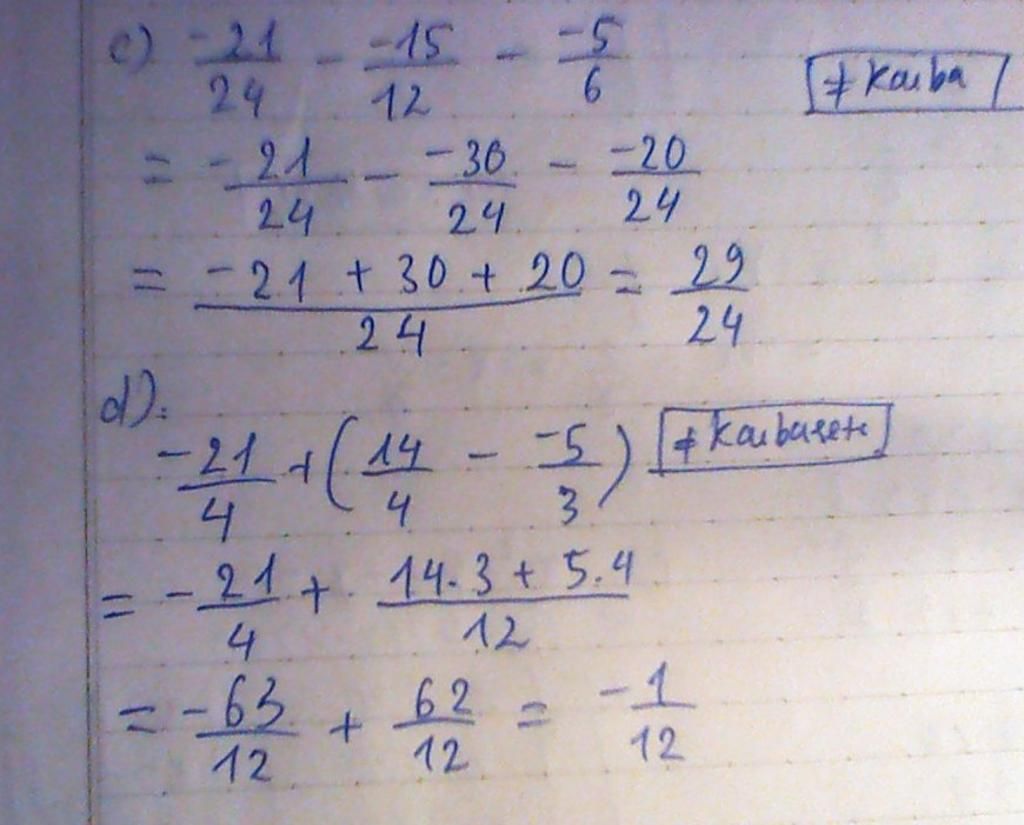 c) -21/24 - -15/12 - -5/6 #Kaiba
= -21/24 - -30/24 - -20/24
= (-21 + 30 + 20)/24 = 29/24
d).
-21/4 + (14/4 - -5/3)
= -21/4 + (14.3 + 5.4)/12
= -63/12 + 62/12 = -1/12